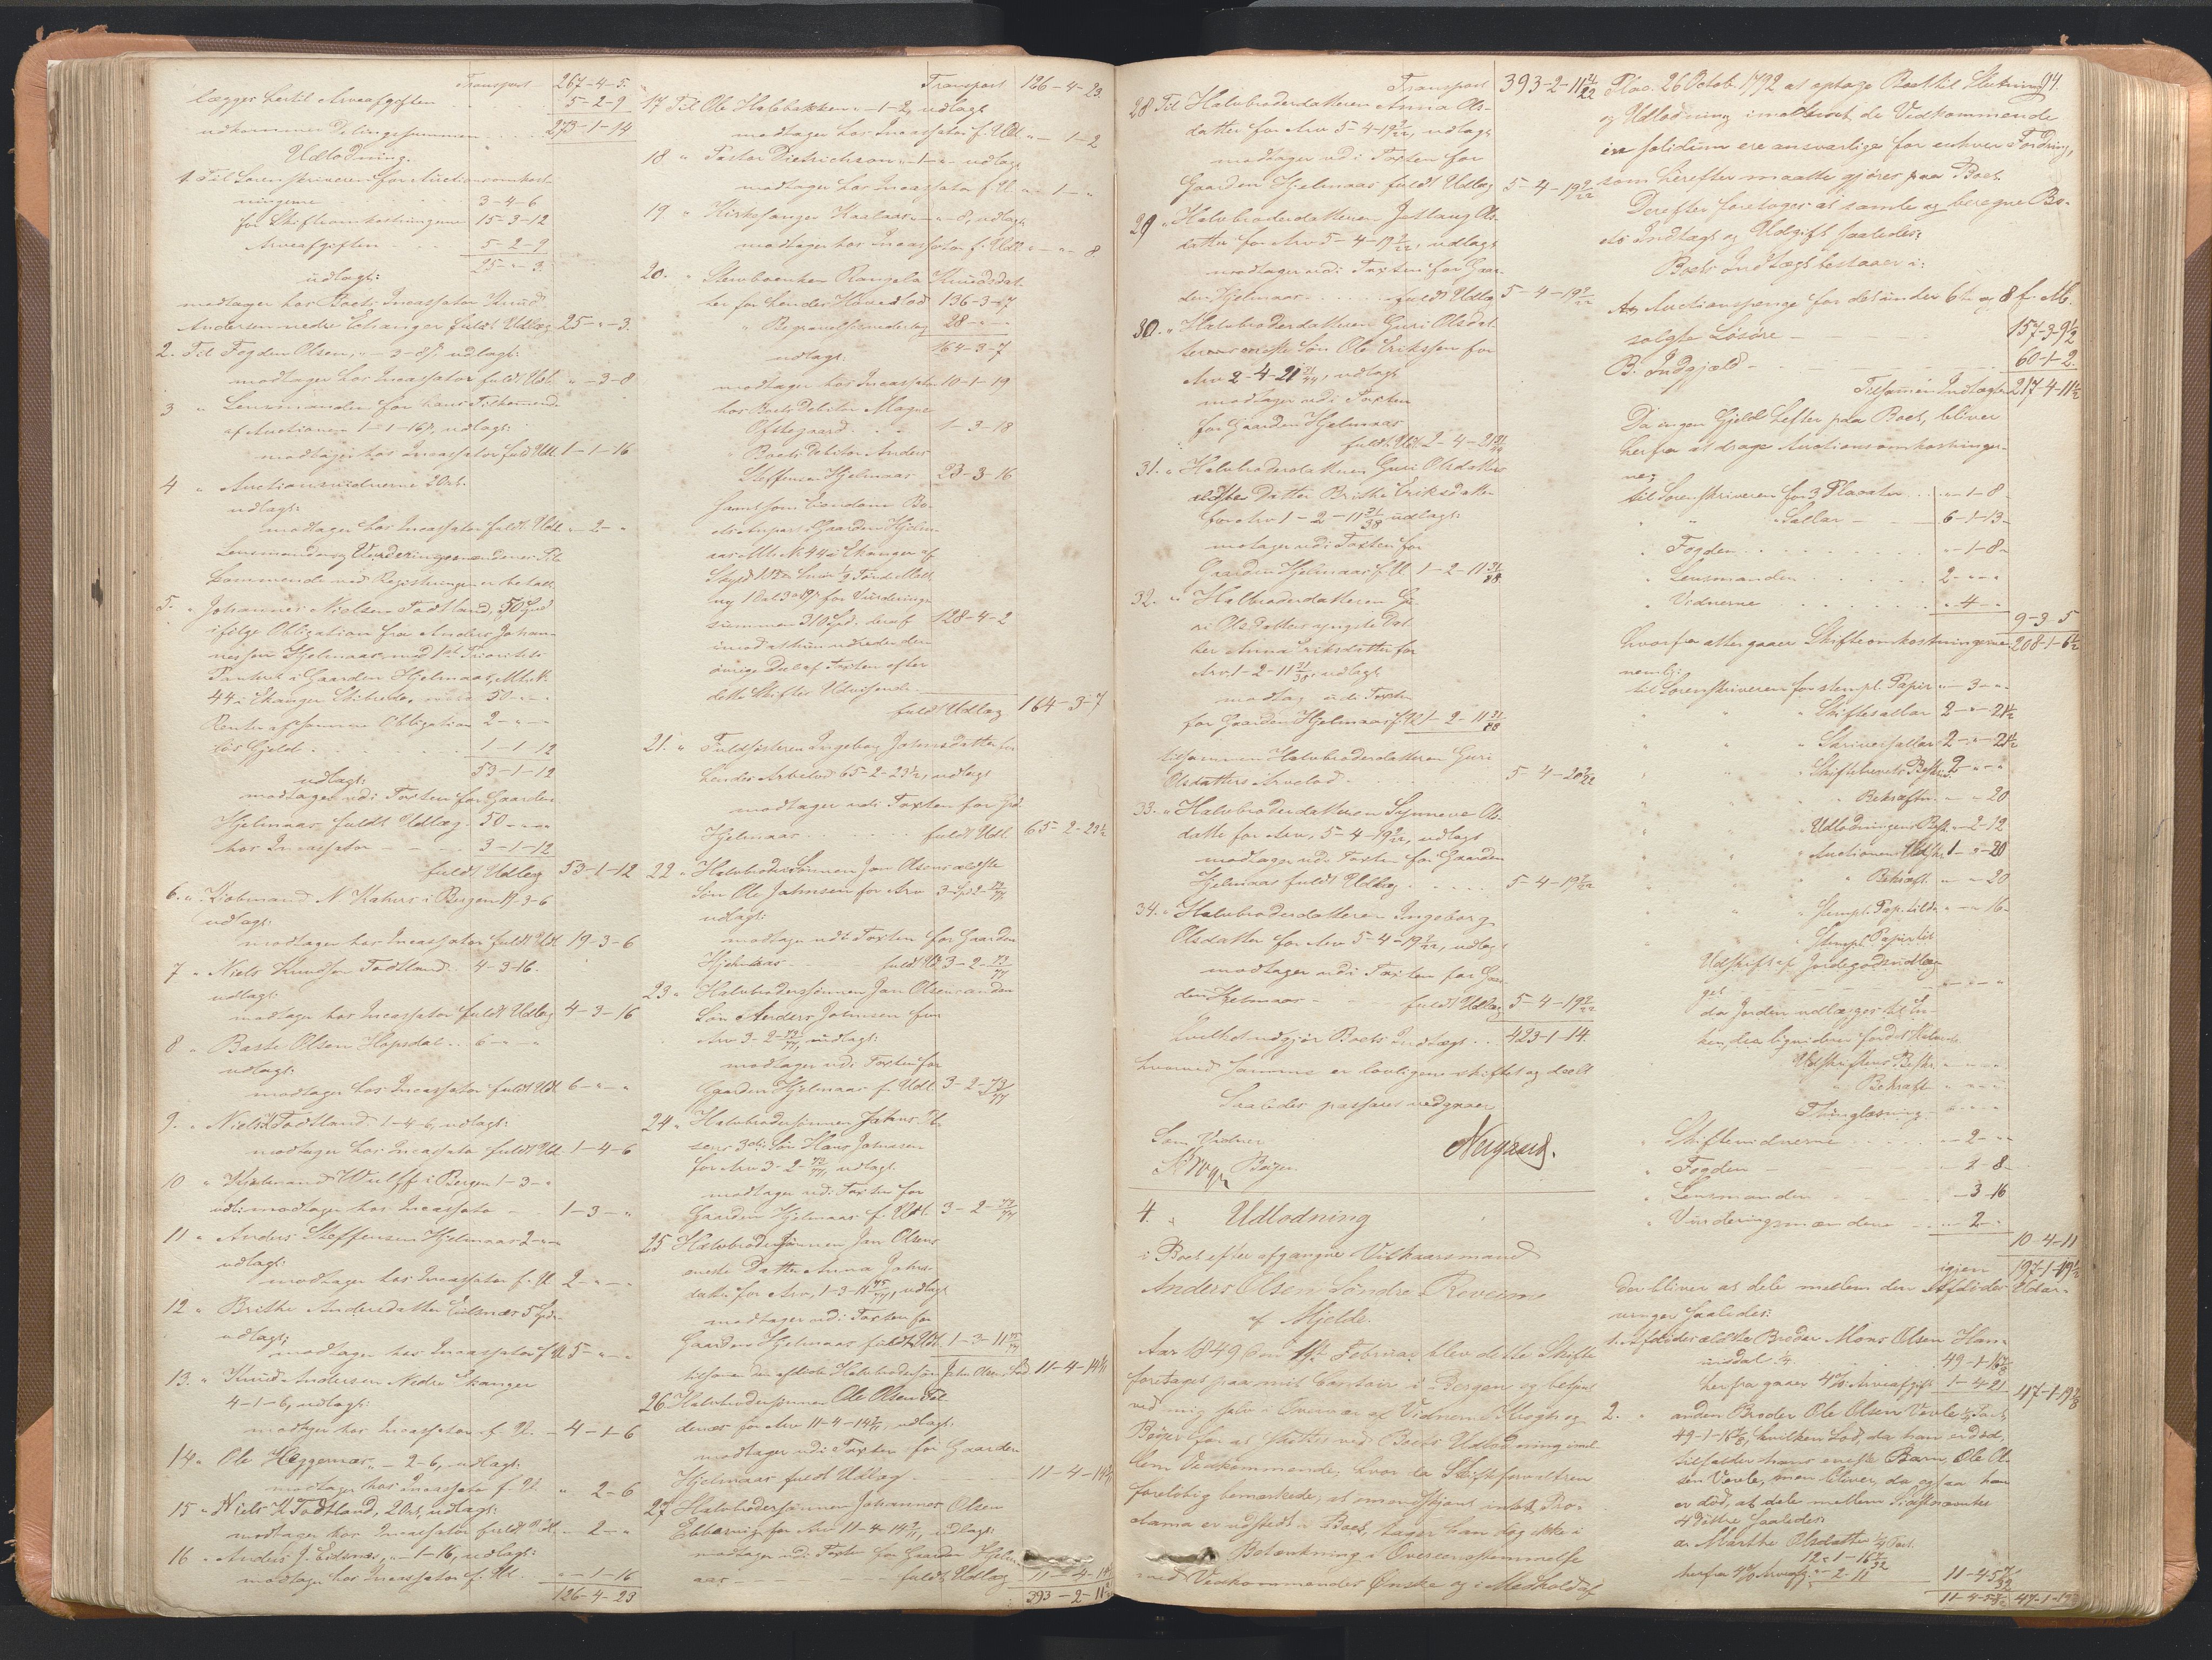 Transport 267-4-5.
lægges hertil Arveafgiften 5-2-9
udkommer Delingssummen 273-1-14
Udlodning.
1. Til Sorenskriveren for Auctionsomkost-
ningerne 3-4-6
for Skifteomkostningerne 15-3-12
Arveafgiften 5-2-9
25-"-3.
udlagt:
modtager hos Boets Incassator Knud
Andersen nedre Echanger fuldt Udlæg 25-"-3.
2. Til Fogden Olsen, "-3-8, udlagt:
modtager hos Incassator fuldt Udl. "-3-8
3 " Lensmanden for hans Tilkommend.
af Auctionen 1-1-16, udlagt:
modtager hos Incassator fuldt Udl. 1-1-16
4 " Auctionsvidnerne 2 Ort.
udlagt:
modtager hos Incassator fuldt Udl. "-2-"
Lensmandens og Vurderingsmændenes Til-
kommende ved Registreringen er betalt.
5. " Johannes Nielsen Todtland, 50 Spd
ifølge Obligation fra Anders Johan-
nessen Hjelmaas med 1ste Prioritets
Panteret i Gaarden Hjelmaas, Mtr. N.
44 i Ekanger Skibrede, 50-"-"
Renter af samme Obligation 2-"-"
løs Gjeld 1-1-12
53-1-12
udlagt:
modtager udi Taxten for Gaarden
Hjelmaas fuldt Udlæg. 50-"-"
hos Incassator 3-1-12
fuldt Udlæg 53-1-12
6. " Kjøbmand N Kahrs i Bergen 19-3-6
udlagt:
modtager hos Incassator fuldt Udl. 19-3-6
7 " Niels Knudsen Todtland 4-3-16.
udlagt:
modtager hos Incassator fuldt Udlæg 4-3-16
8 " Basse Olsen Hopsdal 6-"-"
udlagt:
modtager hos Incassator fuldt Udl. 6-"-"
9. " Niels Todtland 1-4-6, udlagt:
modtager hos Incassator fuldt Udl. 1-4-6
10 " Kjøbmand Wulff i Bergen 1-3-"
udl: modtager hos Incassator 1-3-"
11 " Anders Steffensen Hjelmaas 2-"-"
udlagt:
modtager hos Incassator f. U. 2-"-"
12 " Brithe Andersdatter Eidsnæs 5 Spd.
udlagt:
modtager hos Incassator f. U. 5-"-"
13. " Knud Andersen Nedre Ekanger
4-1-6, udlagt:
modtager hos Incassator f. U. 4-1-6
14 " Ole Heggernæs, "-2-6, udlagt:
modtager hos Incassator f. U. " 2-6
15 " Niels K Todtland, 2 Ort, udlagt:
modtager hos Incassator fuldt Udl. "-2-"
16 " Anders J. Eidsnæs, "-1-16, udlagt:
modtager hos Incassator f. Ul. "-1-16
126-4-23
Transport 126-4-23.
17 Til Ole Halvbakken "-1-2, udlagt
modtager hos Incassator f. Udl. "-1-2
18. " Pastor Dietrichson "-1-" udlagt
modtager hos Incassator f. U. "-1-"
19. " Kirkesanger Kaalaas "-"-8, udlagt
modtager hos Incassator f. Udl. "-"-8
20. " Stervboenken Rangela Knudsdat-
ter for hendes Hovedlod 136-3-7
" Begravelsesudlæg 28-"-"
164-3-7
udlagt:
modtager hos Incassator 10-1-19
hos Boets Debitor Magne
Oftegaard 1-3-18
Boets Debitor Anders
Steffensen Hjelmaas 23-3-16
samt som Eiendom Bo-
ets Anpart i Gaarden Hjelm-
aas Mtr. N. 44 i Ekanger af
Skyld
for Vurderings-
summen 310 Spd. deraf 128-4-2
imod at hun udreder den
øvrige Deel af Taxten efter
dette Skiftes Udvisende.
fuldt Udlæg 164-3-7
21. " Fuldsøsteren Ingeborg Johnsdatter for
hendes Arvelod 65-2-23½, udlagt
modtager udi Taxten for Grd.
Hjelmaas fuldt Udl. 65-2-23½
22 " Halvbrodersønnen Jan Olsens ældste
Søn Ole Jahnsen for Arv 3-2-73/77
udlagt:
modtager udi Taxten for Gaarden
Hjelmaas fuldt U. 3-2-73/77
23 " Halvbrodersønnen Jan Olsens anden
Søn Anders Johnsen for
Arv 3-2-73/77, udlagt:
modtager udi Taxten for
Gaarden Hjelmaas f. Udl. 3-2-73/77
24 " Halvbrodersønnen Jahns Ol-
sens 3die Søn Hans Jahnsen
for Arv 3-2-73/77, udlagt:
modtager udi Taxten for
Gaarden Hjelmaas f. Udl. 3-2-73/77
25 Halvbrodersønnen Jan Olsens
eneste Datter Anna Jahns-
datter for Arv, 1-3-11 75/77, udlagt
modtager udi Taxten for
Gaarden Hjelmaas fuldt Udl. 1-3-11 75/77
tilsammen den afdøde Halvbrodersøn Jahn Olsens Lod 11-4-14 4/11
26 Halvbrodersønnen Ole Olsen
for Arv 11-4-14 4/11, udlagt:
modtager udi Taxten for Gaarden
Hjelmaas fuldt Udlæg 11-4-14 4/11
27 Halvbrodersønnen Johannes Olsen
for Arv 11-4-14 4/11, udlagt:
modtager udi Taxten for Gaarden Hjelm-
aas fuldt Udlæg 11-4-14
393-2-11
Transport 393-2-11 21/22
28 Til Halvbroderdatteren Anna Ols-
datter for Arv 5-4-19 2/22, udlagt
modtager udi Taxten for
Gaarden Hjelmaas fuldt Udlæg 5-4-19 2/22
29 " Halvbroderdatteren Jostaug Ols-
datter for Arv 5-4-19 2/22, udlagt
modtager udi Taxten for Gaar-
den Hjelmaas fuldt Udlæg 5-4-19 2/22
30. " Halvbroderdatteren Guri Olsdat-
ters eneste Søn Ole Erikssen for
Arv 2-4-21 31/44, udlagt
modtager udi Taxten
for Gaarden Hjelmaas
fuldt Udl. 2-4-21 31/44
31. " Halvbroderdatteren Guri Olsdatters
ældste Datter Brithe Eriksdatter
for Arv 1-2-11 31/88 udlagt:
modtager udi Taxten for
Gaarden Hjelmaas f. U. 1-2-11 31/88
32. " Halbroderdatteren Gu-
ri Olsdatters yngste Dat-
ter Anna Eriksdatter for
Arv 1-2-11 31/88, udlagt
modtag. udi Taxten
for Gaarden Hjelmaas f. U. 1-2-11 31/88
tilsammen Halvbroderdatteren Guri
Olsdatters Arvelod 5-4-20 2/22
33. " Halvbroderdatteren Synneve Ols-
datter for Arv, 5-4-19 2/22, udlagt
modtager udi Taxten for Gaarden
Hjelmaas fuldt Udlæg 5-4-19 2/22
34. " Halvbroderdatteren Ingeborg
Olsdatter for Arv 5-4-19 2/22, udlagt
modtager udi Taxten for Gaar-
den Hjelmaas fuldt Udlæg 5-4-19 2/22
hvilket udgjør Boets Indtægt 423-1-14.
hvorved Samme er lovligen skiftet og deelt
Saaledes passeret vedgaaer
Som Vidner Neigaard.
Krogh Bøyer.
4. " Udlodning
i Boet efter afgangne Vilkaarsmand
Anders Olsen Søndre Reveim
af Mjelde.
Aar 1849 den 14de Februar blev dette Skifte
foretaget paa mit Contoir i Bergen og betjent
ved mig selv i Overvær af Vidnerne Krogh og
Bøyer for at sluttes ved Boets Udlodning imel-
lem Vedkommende, hvor da Skifteforvalteren
foreløbig bemærkede, at omendskjønt intet Pro-
clama er udstedt i Boet, tager han dog ikke i
Betænkning i Overeensstemmelse
med Vedkommendes Ønske og i Medhold af
Plac. 26 Octob. 1792 at optage Boet til Slutning 94.
og Udlodning imod at de Vedkommende
in solidum ere ansvarlige for enhver Fordring,
som herefter maatte gjøres paa Boet.
Derefter foretoges at samle og beregne Bo-
ets Indtægt og Udgift saaledes:
Boets Indtægt bestaaer i:
A. Auctionspenge for det under 6te og 8 f. M.
solgte Løsøre 157-3-9½
B. Indgjæld 60-1-2.
Tilsammen Indtægter 217-4-11½
Da ingen Gjeld hefter paa Boet, bliver
herfra at drage Auctionsomkostninger-
ne;
til Sorenskriveren for 3 Placater "-1-8
" " " Sallar 6-1-13
" Fogden "-1-8
" Lensmanden 2-"-"
" Vidnerne "-4-"
9-3 5
hvorfra attergaaer Skifteomkostningerne 208-1-6½
nemlig:
til Sorenskriveren for stempl. Papir "-3-"
" " " Skiftesallar 2-"-21½
" " " Skriversallar 2-"-21½
" " " Skiftebrevets Beskr. 2-"-"
" " " Bekræftn. "-"-20
" " " Udlodningens Besk. "-2-12
" " " Auctionens Udskr. 1-"-20
" " " Bekræft. "-"-20
" " " Stempl. Pap. tildo "-"-16
" Stempl. Papir til
Udskrift af Jordegodsudlæg-
get "-"-"
da Jorden udlægges til En-
ken,
Udskriftens Beskr. "-"-"
" Bekræft "-"-"
Thinglæsning "-"-"
" Skiftevidnerne "-2-"
" Fogden "-2-8
" Lensmanden "-3-16
" Vurderingsmændene "-2-"
10-4-11
igjen 197-1-19½
Der bliver at dele mellem den Afdødes Udar-
vinger saaledes:
1. Afdødes ældste Broder Mons Olsen Ham-
insdal ¼ 49-1-16 7/8
herfra gaaer 4% Arveafgift 1-4-21 47-1-19 7/8
2. " anden Broder Ole Olsen Vevle ¼ Part
49-1-16 7/8, hvilken Lod, da han er død,
tilfalder hans eneste Barn, Ole Ol-
sen Vevle, men bliver, da ogsaa han
er død, at dele mellem Sidstnævntes
4 Døttre saaledes:
a. Marthe Olsdatter ¼ Part
12-1-16 7/32
herfra 4% Arveafg. "-2-11 11-4-5 7/32
11-4-5 7/32 47-1-19 7/8